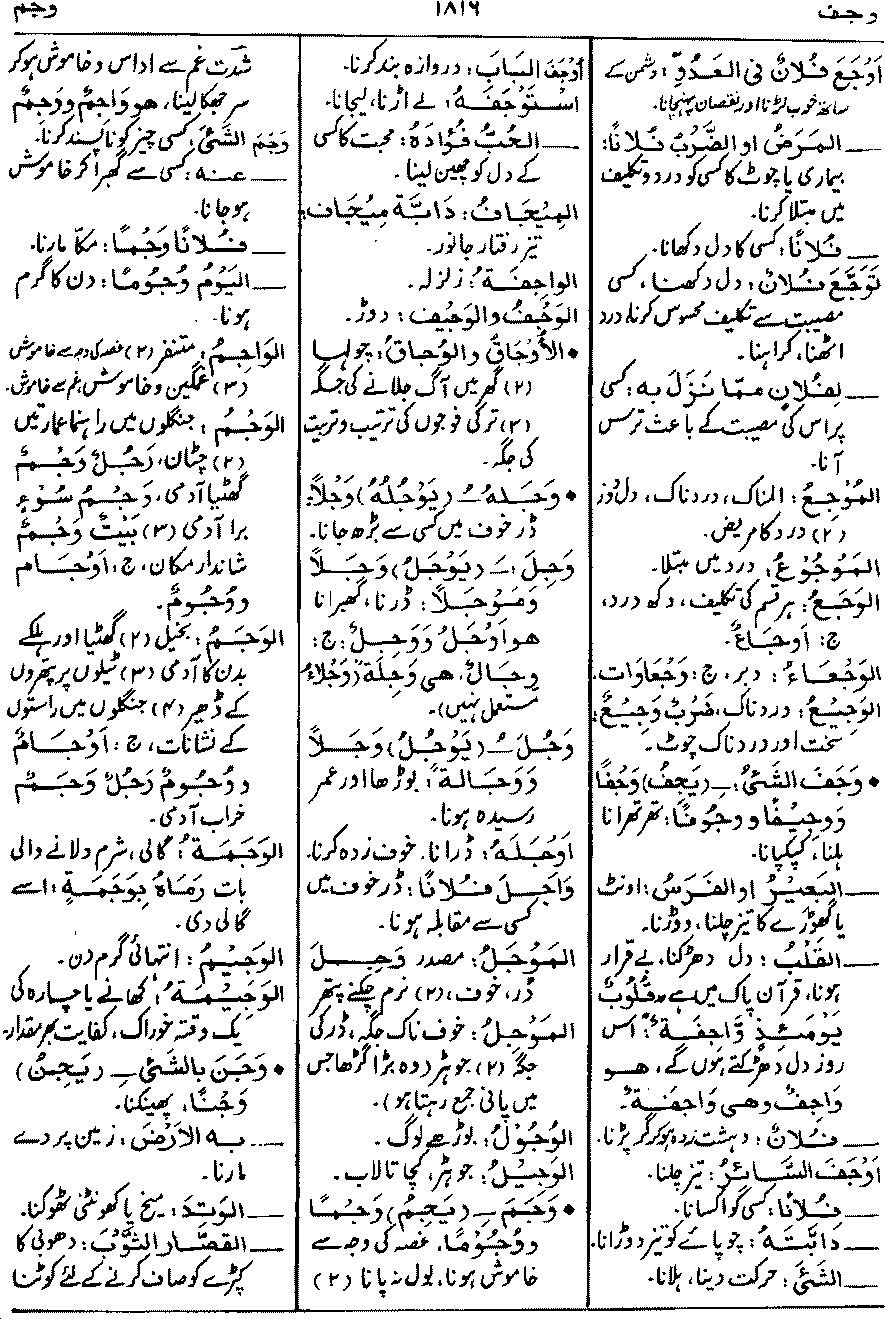 وجف
١٨١٦
وجم
اَوْجَعَ فُلَانٌ فِی العَدُوِّ: دشمن کے
ساتھ خوب لڑنا اور نقصان پہنچانا۔
ــــ المَرَضُ او الضَّرْبُ فُلَانًا:
بیماری یا چوٹ کا کسی کو درد و تکلیف
میں مبتلا کرنا۔
ــــ فُلَانًا: کسی کا دل دکھانا۔
تَوَجَّعَ فُلَانٌ: دل دکھنا، کسی
مصیبت سے تکلیف محسوس کرنا، درد
اٹھنا، کراہنا۔
ــــ لِفُلَانٍ مِمَّا نَزَلَ بِهِ: کسی
پر اس کی مصیبت کے باعث ترس
آنا۔
المُوْجِعُ: المناک، دردناک، دل دوز
(۲) درد کا مریض۔
المَوْجُوْعُ: درد میں مبتلا۔
الوَجَعُ: ہر قسم کی تکلیف، دکھ درد،
ج: اَوْجَاعٌ۔
الوَجْعَاءُ: دبر، ج: وَجْعَاوَات۔
الوَجِيْعُ: دردناک، ضَرْبٌ وَجِيْعٌ:
سخت اور دردناک چوٹ۔
• وَجَفَ الشَّیْئُ ــِـ (يَجِفُ) وَجْفًا
وَوَجِيْفًا و وجُوفًا: تھرتھرانا
ہلنا، کپکپانا۔
ــــ البَعِيْرُ او الفَرَسُ: اونٹ
یا گھوڑے کا تیز چلنا، دوڑنا۔
ــــ القَلْبُ: دل دھڑکنا، بے قرار
ہونا، قرآن پاک میں ہے "قُلُوْبٌ
يَوْمَئِذٍ وَّاجِفَةٌ": اس
روز دل دھڑکتے ہوں گے، هو
وَاجِفٌ وهی وَاجِفَةٌ۔
ــــ فُلَانٌ: دہشت زدہ ہو کر گر پڑنا۔
اَوْجَفَ السَّائِرُ: تیز چلنا۔
ــــ فُلَانًا: کسی کو اکسانا۔
ــــ دَابَّتَهُ: چوپائے کو تیز دوڑانا۔
ــــ الشَّیْئَ: حرکت دینا، ہلانا۔
اَوْجَفَ البَابَ: دروازہ بند کرنا۔
اسْتَوْجَفَهُ: لے اڑنا، لیجانا۔
ــــ الحُبُّ فُؤَادَهُ: محبت کا کسی
کے دل کو چھین لینا۔
المِيْجَافُ: دَابَّةٌ مِيْجَافٌ:
تیز رفتار جانور۔
الواجِفَةُ: زلزلہ۔
الوَجْفُ والوَجِيْف: دوڑ۔
• الأُوْجَاقُ والوُجاقُ: چولہا
(۲) گھر میں آگ جلانے کی جگہ
(۳) ترکی فوجوں کی ترتیب و تربیت
کی جگہ۔
• وَجَلَهُ ــُـ (يَوْجُلُهُ) وَجْلًا:
ڈر خوف میں کسی سے بڑھ جانا۔
وَجِلَ ــَـ (يَوْجَلُ) وَجَلًا
وَمَوْجَلًا: ڈرنا، گھبرانا
هو اَوْجَلُ وَوَجِلٌ، ج:
وِجَالٌ، هی وَجِلَةٌ (وَجْلَاءُ
مستعمل نہیں)۔
وَجُلَ ــُـ (يَوْجُلُ) وَجَلًا
وَوَجَالَةً: بوڑھا اور عمر
رسیدہ ہونا۔
اَوْجَلَهُ: ڈرانا۔ خوف زدہ کرنا۔
وَاجَلَ فُلَانًا: ڈر خوف میں
کسی سے مقابلہ ہونا۔
المَوْجَلُ: مصدر وَجِلَ
ڈر، خوف، (۲) نرم چکنے پتھر
المَوْجِلُ: خوف ناک جگہ، ڈر کی
جگہ (۲) جوہڑ (وہ بڑا گڑھا جس
میں پانی جمع رہتا ہو)۔
الوُجُوْلُ: بوڑھے لوگ۔
الوَجِيْلُ: جوہڑ، کچا تالاب۔
• وَجَمَ ــِـ (يَجِمُ) وَجْمًا
ووُجُوْمًا: غصہ کی وجہ سے
خاموش ہونا، بول نہ پانا (۲)
شدّت غم سے اداس و خاموش ہو کر
سر جھکا لینا، هو وَاجِمٌ و وَجِمٌ
وَجَمَ الشَّیْئَ: کسی چیز کو ناپسند کرنا۔
ــــ عنه: کسی سے گھبرا کر خاموش
ہو جانا۔
ــــ فُلَانًا وَجْمًا: مکّا مارنا۔
ــــ اليَوْمُ وُجُومًا: دن کا گرم
ہونا۔
الوَاجِمُ: متنفر (۲) غصہ کی وجہ سے خاموش
(۳) غمگین و خاموش، غم سے خاموش۔
الوَجْمُ: جنگلوں میں راہنما عمارتیں
(۲) چٹان، رَجُلٌ وَجْمٌ
گھٹیا آدمی، وَجْمُ سُوْءٍ
برا آدمی (۳) بَيْتٌ وَجْمٌ
شاندار مکان، ج: اَوْجَام
ووُجُومٌ۔
الوَجَمُ: بخیل (۲) گھٹیا اور ہلکے
بدن کا آدمی (۳) ٹیلوں پر پتھروں
کے ڈھیر (۴) جنگلوں میں راستوں
کے نشانات، ج: اَوْجَامٌ
ووُجُومٌ رَجُلٌ وَجَمٌ
خراب آدمی۔
الوَجْمَةُ: گالی، شرم دلانے والی
بات رَمَاهُ بِوَجْمَةٍ: اسے
گالی دی۔
الوَجِيْمُ: انتہائی گرم دن۔
الوَجِيْمَةُ: کھانے یا چارہ کی
یک وقتہ خوراک، کفایت بھر مقدار۔
• وَجَنَ بِالشَّیْئِ ــِـ (يَجِنُ)
وَجْنًا: پھینکنا۔
ــــ بِهِ الاَرْضَ: زمین پر دے
مارنا۔
ــــ الوَتِدَ: میخ یا کھونٹی ٹھوکنا۔
ــــ القَصَّارُ الثَّوْبَ: دھوبی کا
کپڑے کو صاف کرنے کے لئے کوٹنا